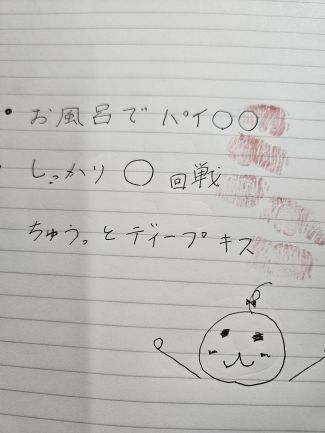 ・お風呂で パイ○○
しっかり ○ 回戦
ちゅう。と ディープ キス